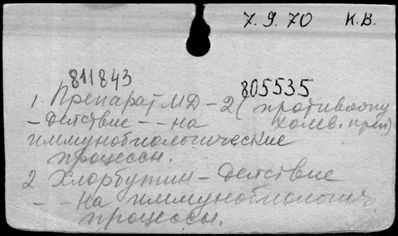 7.9.70 К.В.
811843 805535
1. Препарат МД-2 (противоопу
- действие - - на холев. преп)
иммунобиологические
процессы.
2 Хлорбутин - действие
- - на иммунобиологич
процессы.